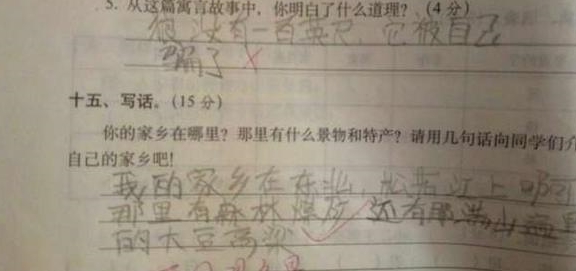 5. 从这篇寓言故事中,你明白了什么道理?(4分)
没有一百英尺,它被自己
骗了
十五、写话。(15分)
你的家乡在哪里?那里有什么景物和特产?请用几句话向同学们介
自己的家乡吧!
我的家乡在东北,松花江上
那里有森林煤矿 还有那满山遍野
的大豆高粱